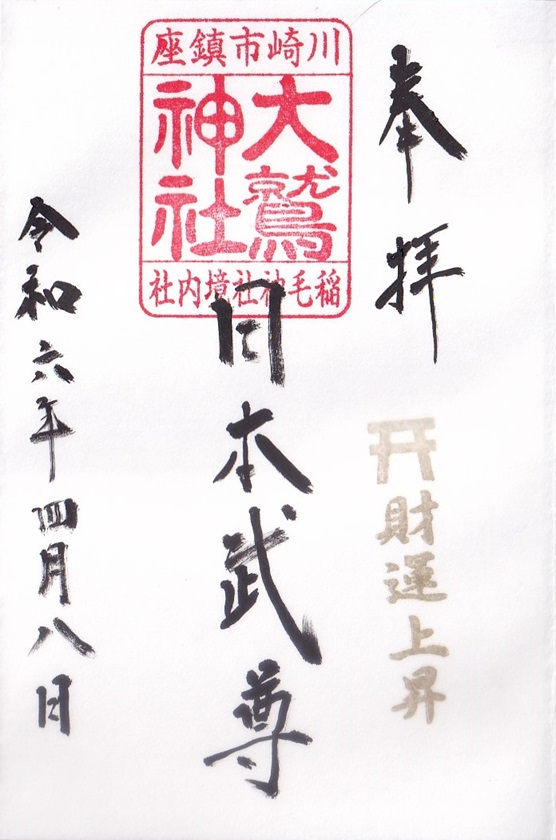 奉拝
財運上昇
川崎市鎮座
大鷲
神社
稲毛神社境内社
日本武尊
令和六年四月八日